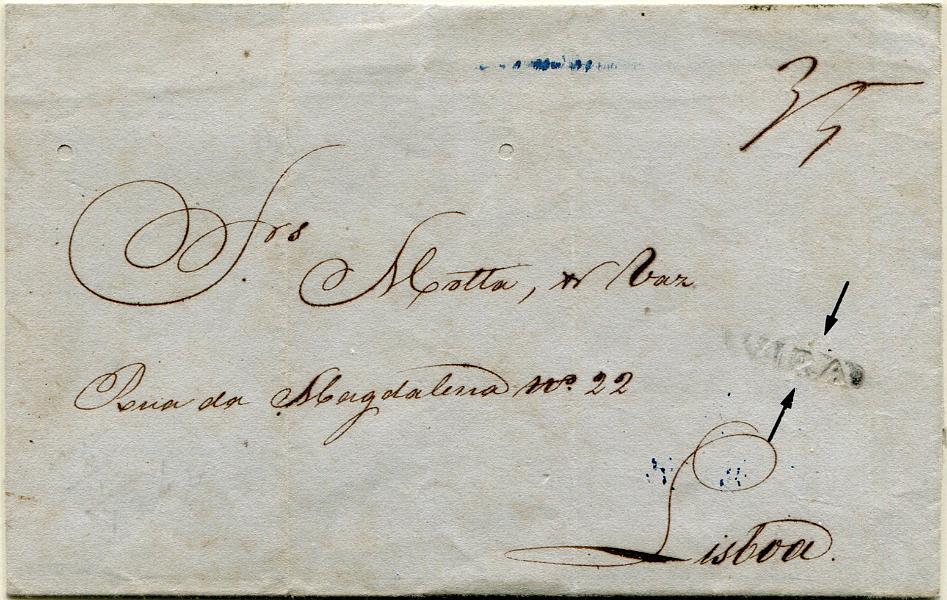 35
Srs
Motta, & Vaz
Rua da Magdalena Nº 22
Lisboa.